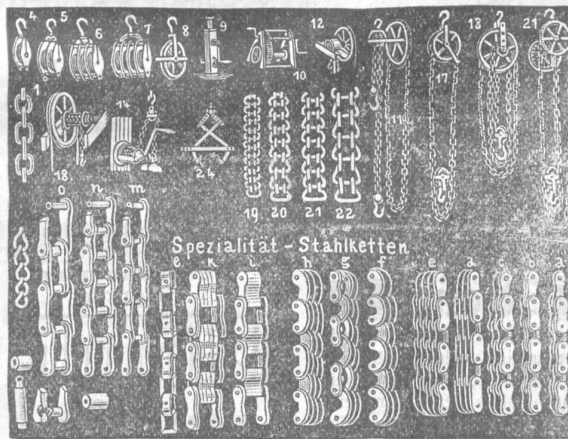 4 5 6 7 8 9 10 12 18 21
1 14 11 17
18 24 19 20 21 22
o n m
Spezialität - Stahlketten
l k i h g f e d c b a